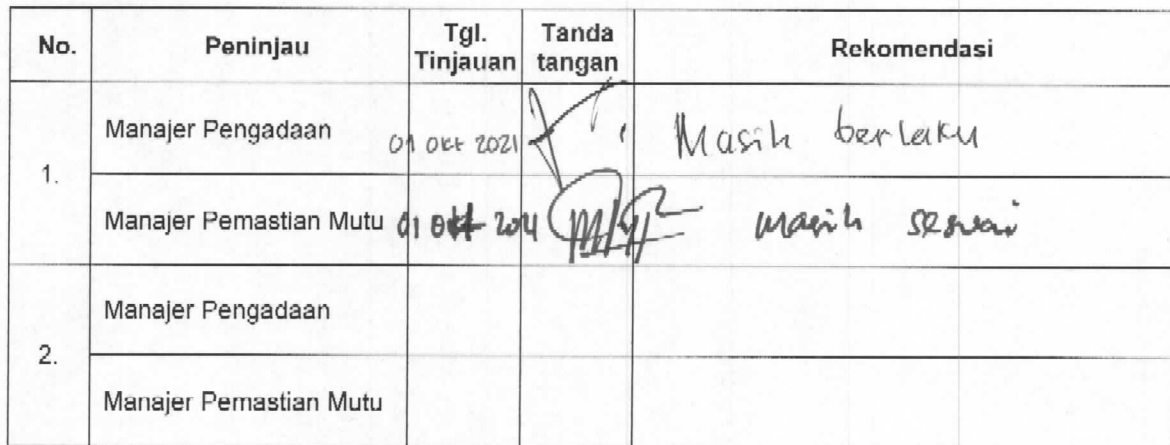 No. Peninjau Tgl. Tinjauan Tanda tangan Rekomendasi
1.
Manajer Pengadaan 01 Okt 2021 Masih berlaku
Manajer Pemastian Mutu 01 Okt 2021 masih sesuai
2.
Manajer Pengadaan
Manajer Pemastian Mutu